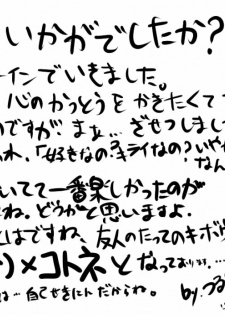 いかがでしたか?
インでいきました。
心のかっとうをかきたくて
のですが、まぁ… ざせつしました
「好きなの?キライなの?いや
なん
いてて一番楽しかったのが
ね。どうかと思いますよ.
はですね、友人のたってのキボウ
)×コトネとなっております…
は… 自己せきにんだからね。
by.つる